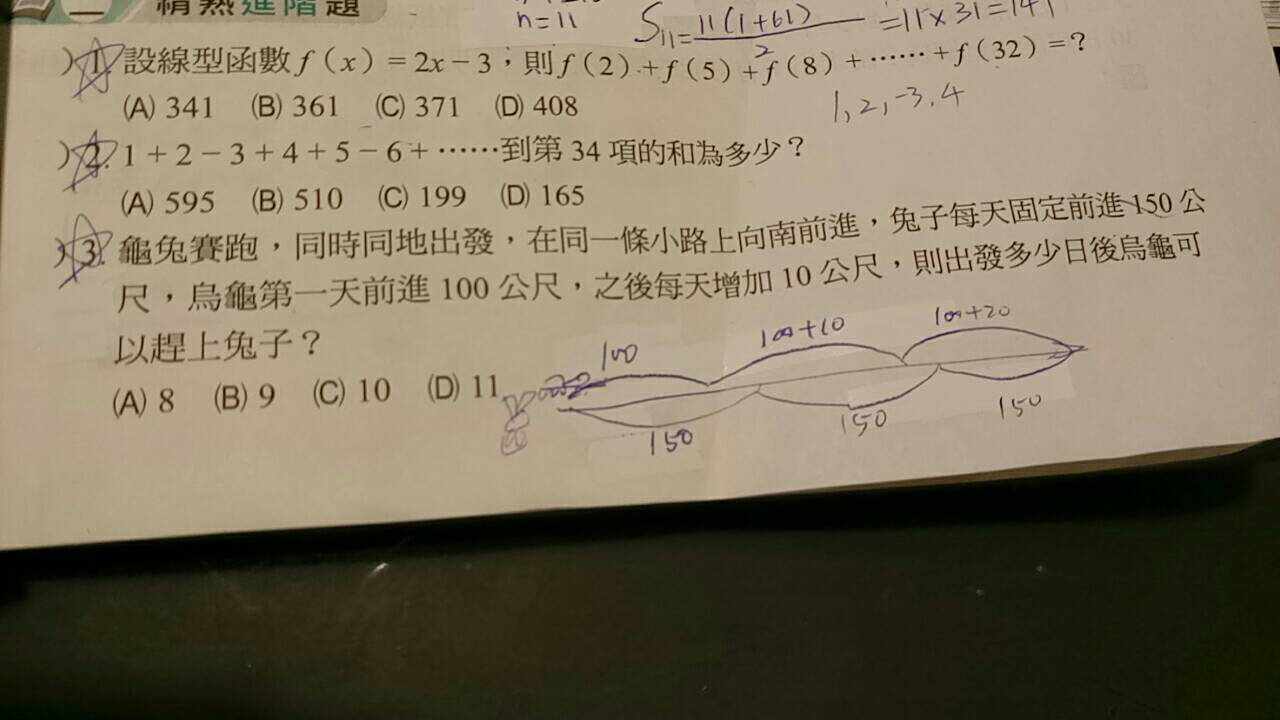 精熟進階題
n=11
S₁₁= 11(1+61) / 2 =11×31=141
)1. 設線型函數 f(x)=2x-3,則 f(2)+f(5)+f(8)+……+f(32)=?
(A) 341 (B) 361 (C) 371 (D) 408
1,2,-3,4
)2. 1+2-3+4+5-6+……到第 34 項的和為多少?
(A) 595 (B) 510 (C) 199 (D) 165
)3. 龜兔賽跑,同時同地出發,在同一條小路上向南前進,兔子每天固定前進 150 公
尺,烏龜第一天前進 100 公尺,之後每天增加 10 公尺,則出發多少日後烏龜可
以趕上兔子?
100 100+10 100+20
(A) 8 (B) 9 (C) 10 (D) 11
150 150 150